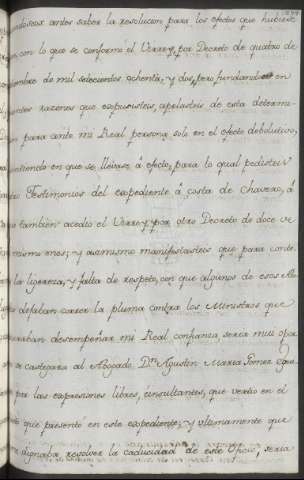 antes saber la resolucion para los efectos que hubiese
con lo que se conformó el Virrey por Decreto de quatro de
mil setecientos ochenta, y dos, pero fundando en
razones que expusisteis, apelasteis de esta determi-
para ante mi Real persona solo en el efecto debolutivo,
en que se llevase á efecto, para lo qual pedisteis
Testimonios del expediente á costa de Chavero, á
tambien accedió el Virrey por otro Decreto de doce de
mismo mes; y asimismo manifestasteis que para conte-
la ligereza, y falta de respeto, con que algunos de esos Abo-
defaban correr la pluma contra los Ministros que
desempeñar mi Real confianza, seria muy opor
se castigara al Abogado Dn. Agustin Maria Gomez Eguia
por las expresiones libres, é insultantes, que vertio en el
que presentó en este expediente; y ultimamente que
resolver la caducidad de este Oficio, seria